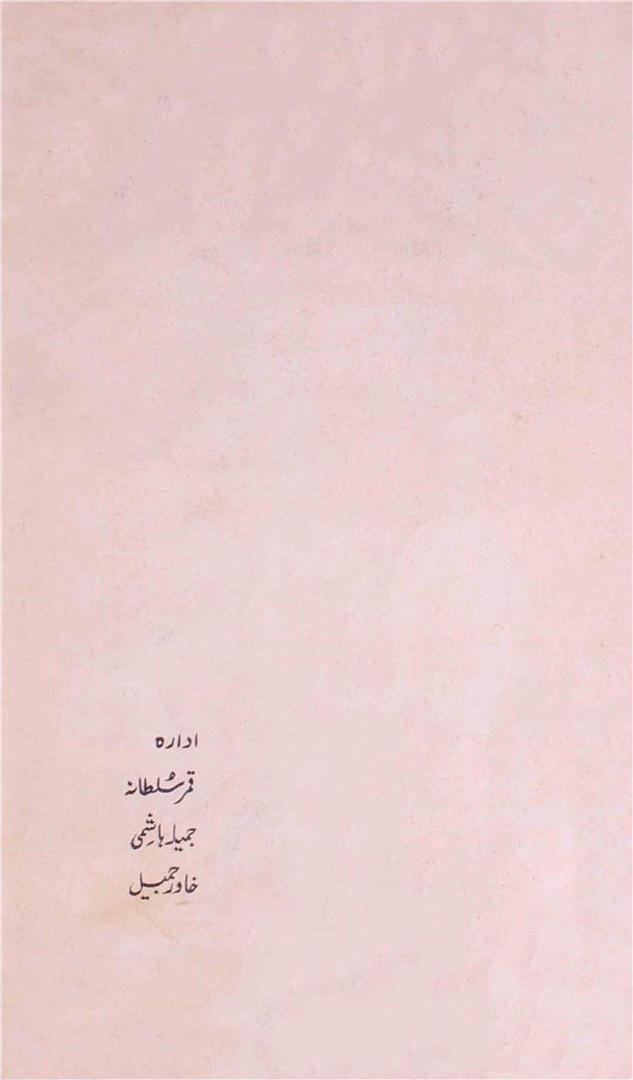 ادارہ
قمر سُلطانہ
جمیلہ ہاشمی
خاور جمیل